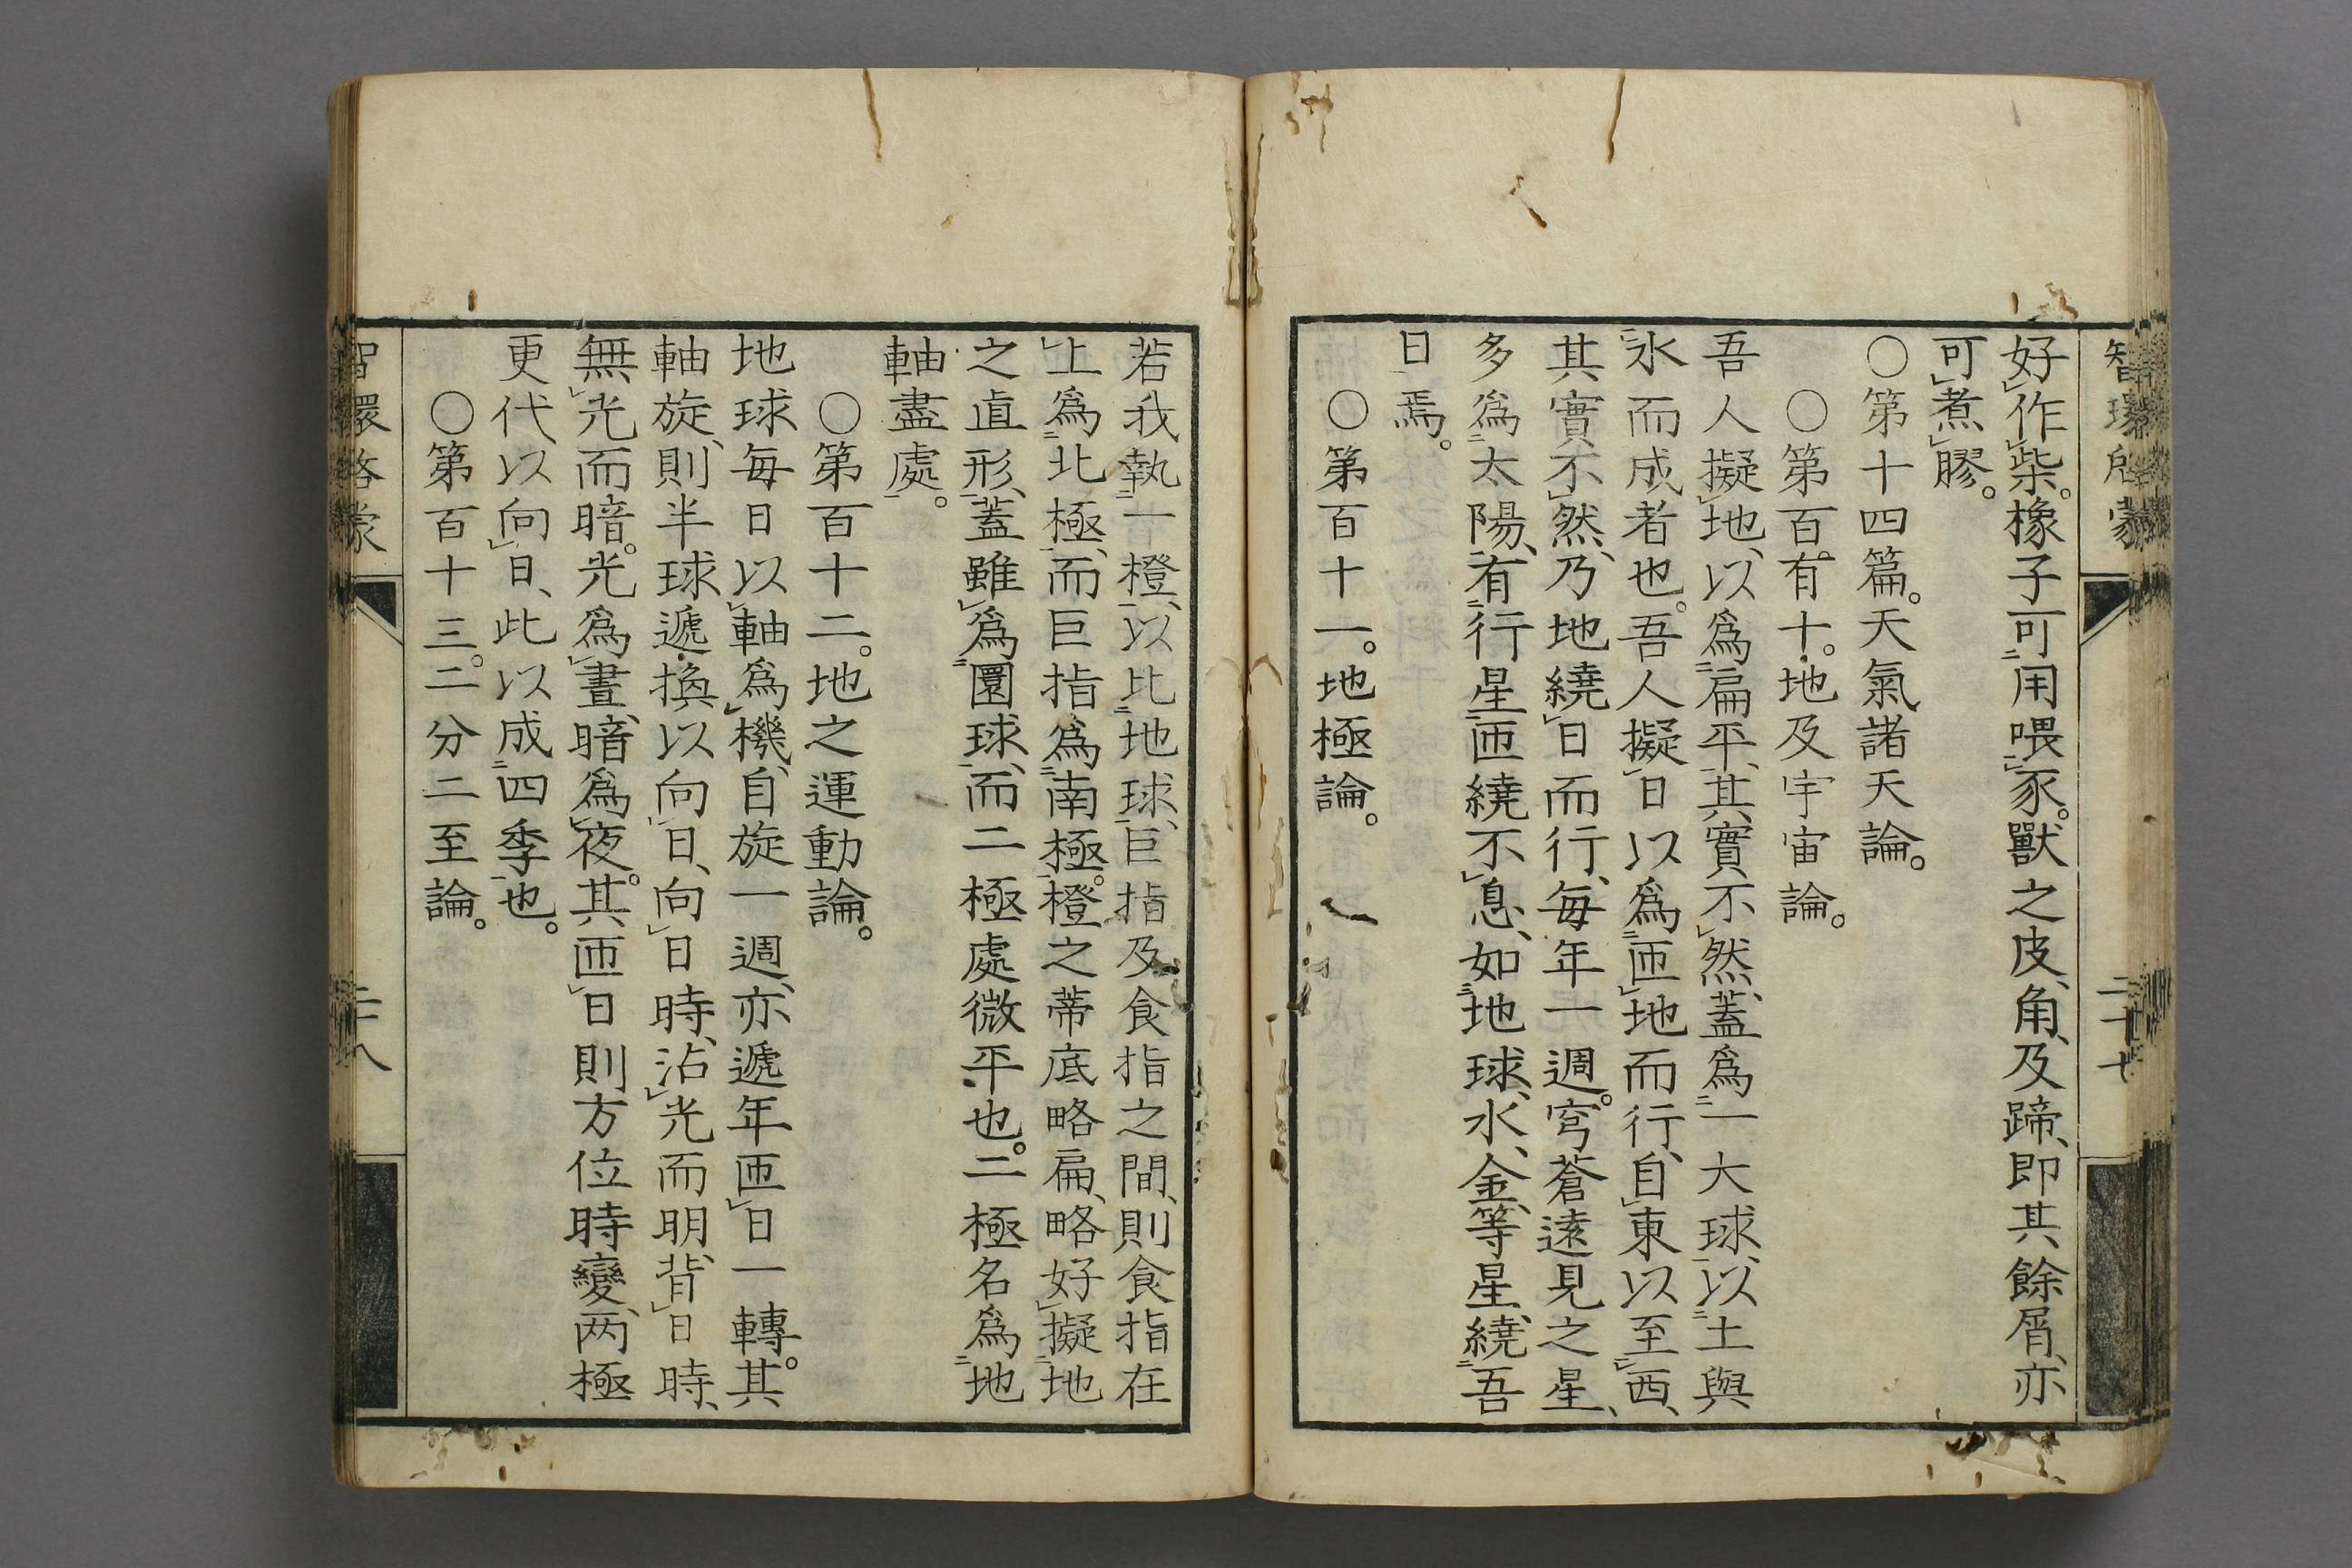 智環啓蒙
二十七
好作柴。橡子可用喂豕。獸之皮、角、及蹄、即其餘屑、亦
可煮膠。
〇第十四篇。天氣諸天論。
〇第百有十。地及宇宙論。
吾人擬地、以爲扁平、其實不然、蓋爲一大球、以土與
水而成者也。吾人擬日以爲匝地而行、自東以至西、
其實不然、乃地繞日而行、每年一週。穹蒼遠見之星、
多爲太陽、有行星匝繞不息、如地球、水、金、等星、繞吾
日焉。
〇第百十一。地極論。
若我執一橙、以比地球、巨指及食指之間、則食指在
上爲北極、而巨指爲南極。橙之蒂底略扁、略好擬地
之直形、蓋雖爲圜球、而二極處微平也。二極名爲地
軸盡處。
〇第百十二。地之運動論。
地球每日以軸爲機、自旋一週、亦遞年匝日一轉。其
軸旋、則半球遞換以向日、向日時、沾光而明、背日時、
無光而暗。光爲晝、暗爲夜。其匝日則方位時變、两極
更代以向日、此以成四季也。
〇第百十三。二分二至論。
智環啓蒙
二十八